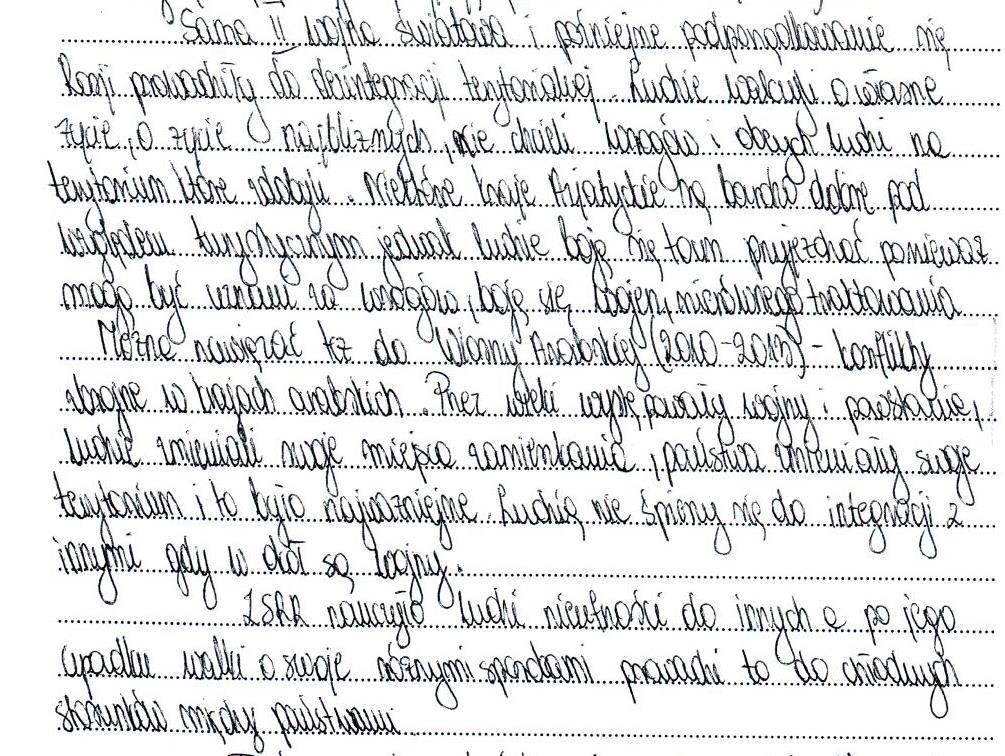 Sama II wojna światowa i późniejsze podporządkowanie się
Rosji prowadziły do dezintegracji terytorialnej. Ludzie walczyli o własne
życie, o życie najbliższych, nie chcieli wrogów i obcych ludzi na
terytorium które zdobyli. Niektóre kraje Azjatyckie są bardzo dobre pod
względem turystycznym jednak ludzie boją się tam przyjeżdżać ponieważ
mogą być uznani za wrogów, boją się wojen, nierównego traktowania
Można nawiązać tż do Wiosny Arabskiej (2010-2013) - konflikty
zbrojne w krajach arabskich. Przez wieki występowały wojny i powstanie,
ludzie zmieniali swoje miejsca zamieszkania, państwa zmieniały swoje
terytorium i to było najważniejsze. Ludzie nie śpieszy się do integracji z
innymi gdy w okół są wojny.
ZSRR nauczyło ludzi nieufności do innych a po jego
upadku walki o swoje różnymi sposobami prowadzi to do chłodnych
stosunków między państwami